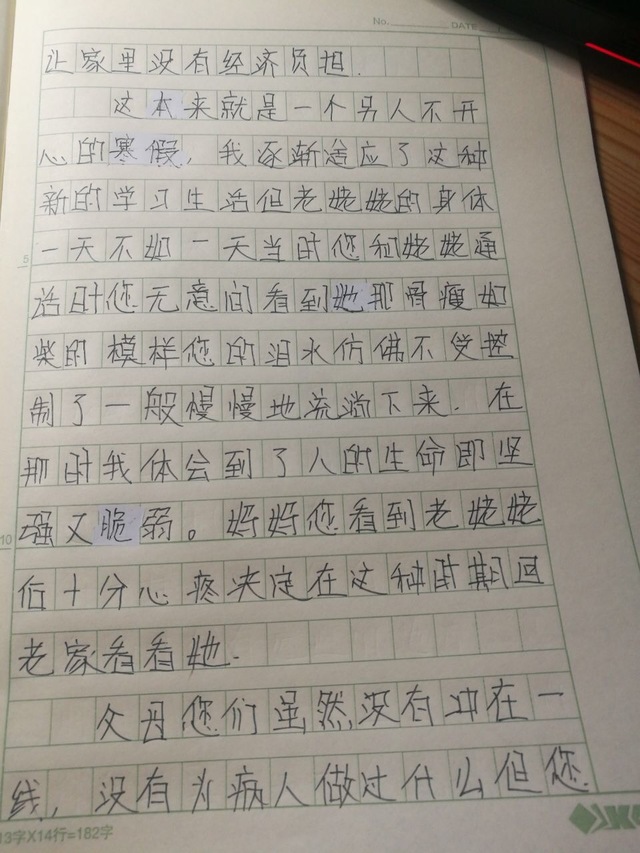 No. DATE
让家里没有经济负担.
这本来就是一个另人不开
心的寒假，我逐渐适应了这种
新的学习生活但老姥姥的身体
一天不如一天当时您和姥姥通
话时您无意间看到她那骨瘦如
柴的模样您的泪水仿佛不受控
制了一般慢慢地流淌下来. 在
那时我体会到了人的生命即坚
强又脆弱。妈妈您看到老姥姥
后十分心疼决定在这种时期回
老家看看她.
父母您们虽然没有冲在一
线，没有为病人做过什么但您
5
10
13字X14行=182字